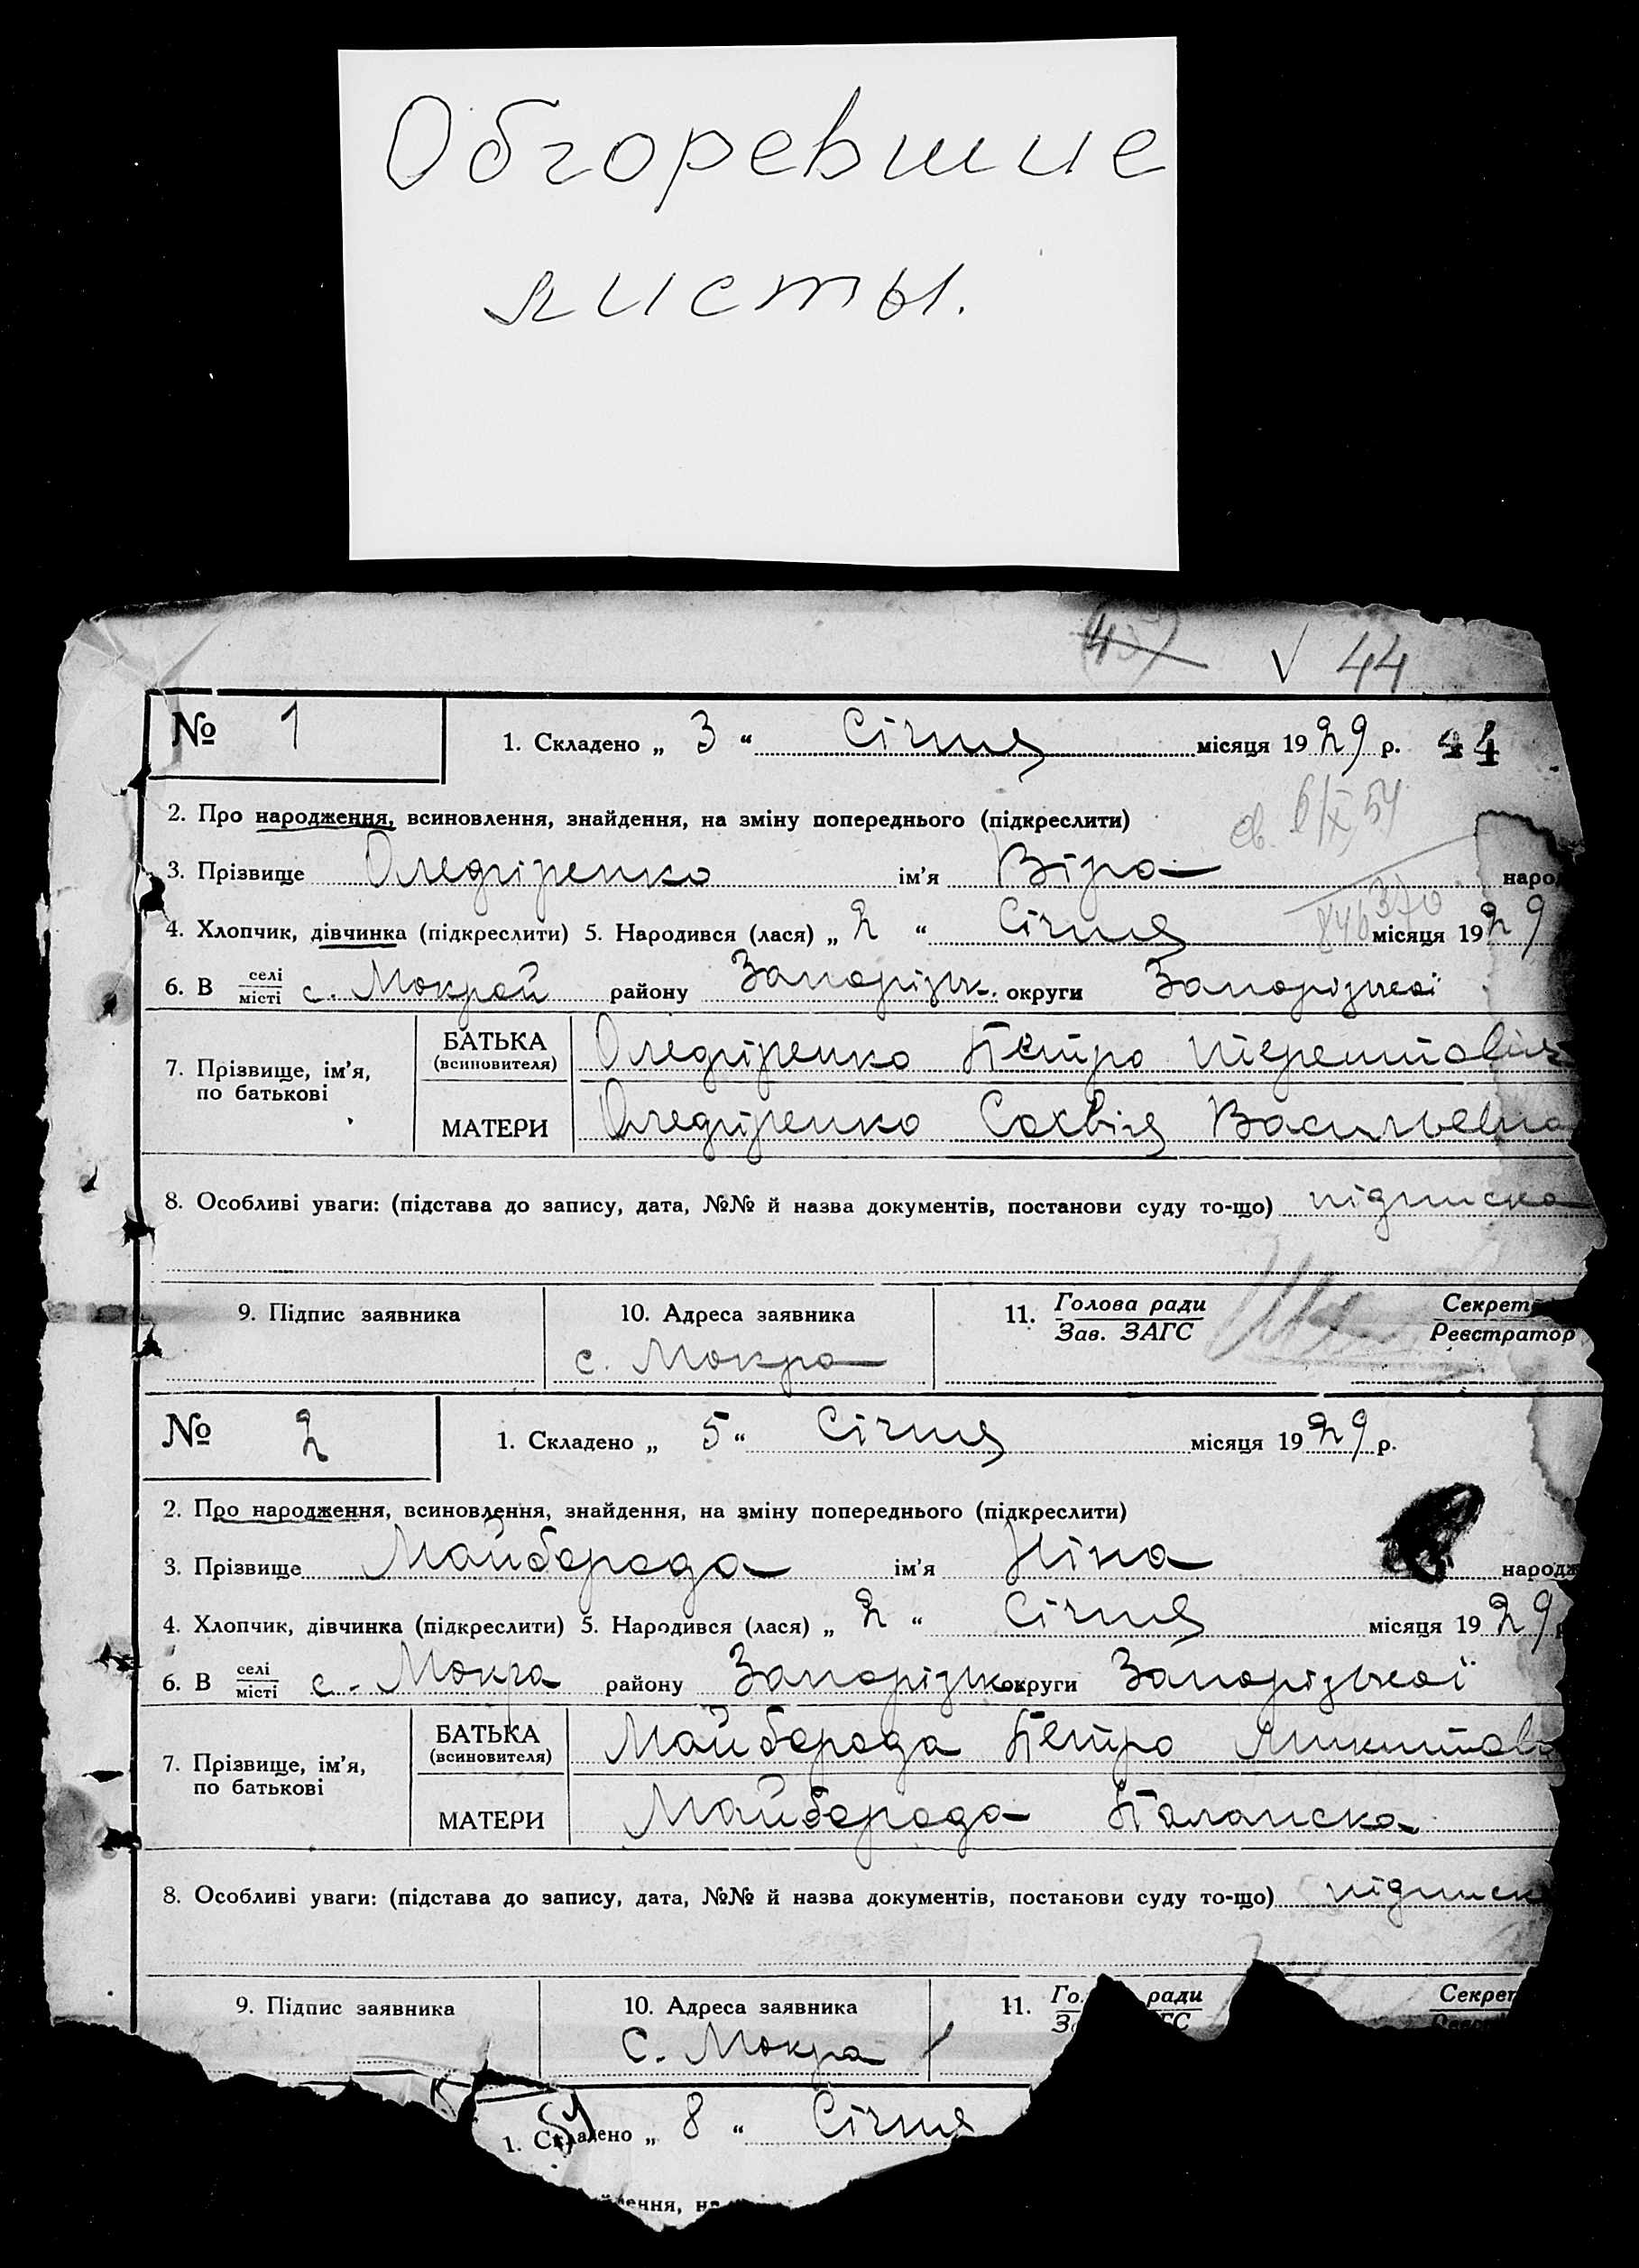 Обгоревшие
листы.
√ 44
№ 1
1. Складено „ 3 “ Січня місяця 1929 р. 44
2. Про народження, всиновлення, знайдення, на зміну попереднього (підкреслити)
3. Прізвище Оледгіренко ім’я Віра народ
4. Хлопчик, дівчинка (підкреслити) 5. Народився (лася) „ 2 “ Січня місяця 1929
6. В селі
місті с. Мокрой району Запорізьк. округи Запорізької
7. Прізвище, ім’я,
по батькові
БАТЬКА
(всиновителя) Оледгіренко Петро Терентовіч
МАТЕРИ Оледгіренко Сохвія Васильевна
8. Особливі уваги: (підстава до запису, дата, №№ й назва документів, постанови суду то-що) підписка
9. Підпис заявника 10. Адреса заявника 11. Голова ради
Зав. ЗАГС Секрет
Реєстратор
с. Мокра
№ 2
1. Складено „ 5 “ Січня місяця 1929 р.
2. Про народження, всиновлення, знайдення, на зміну попереднього (підкреслити)
3. Прізвище Майборода ім’я Ніна народж
4. Хлопчик, дівчинка (підкреслити) 5. Народився (лася) „ 2 “ Січня місяця 1929
6. В селі
місті с. Мокра району Запорізьк. округи Запорізької
7. Прізвище, ім’я,
по батькові
БАТЬКА
(всиновителя) Майборода Петро Микитов
МАТЕРИ Майборода Паланска
8. Особливі уваги: (підстава до запису, дата, №№ й назва документів, постанови суду то-що) підписк
9. Підпис заявника 10. Адреса заявника 11. Го ради
За ГС Секрет
С. Мокра
1. Складено „ 8 “ Січня
ення, на